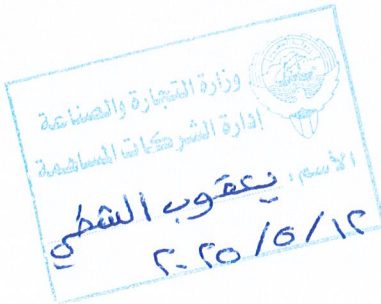 وزارة التجارة والصناعة
إدارة الشركات المساهمة
الاسم: يعقوب الشطي
٢٠٢٥/٥/١٢